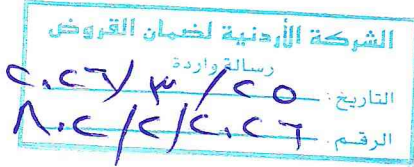 الشركة الأردنية لضمان القروض
رسالة واردة
التاريخ: ٢٠٢٦/٣/٢٥
الرقم: ٨٠٢/٢/٢٠٢٦